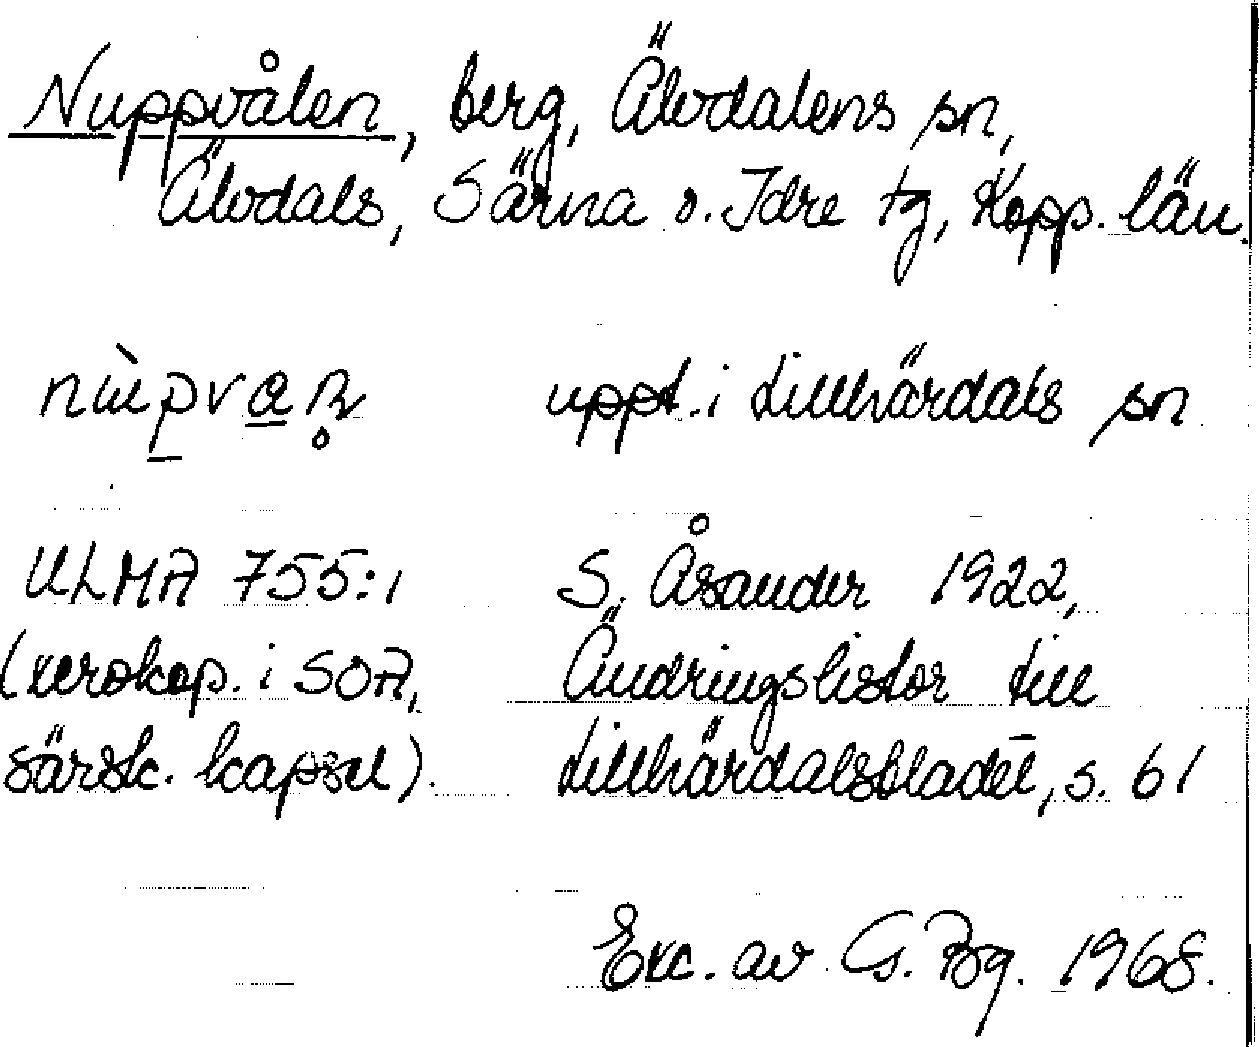 Nuppvålen, berg, Älvdalens sn,
Älvdals, Särna o. Idre tg, Kopp. län.
uppt. i Lillhärdals sn
ULMA 755:1 S. Åsander 1922,
(xerokop. i SOA, Ändringslistor till
särsk. kapsel). Lillhärdalsbladet, s. 61
Exc. av G. Bg. 1968.